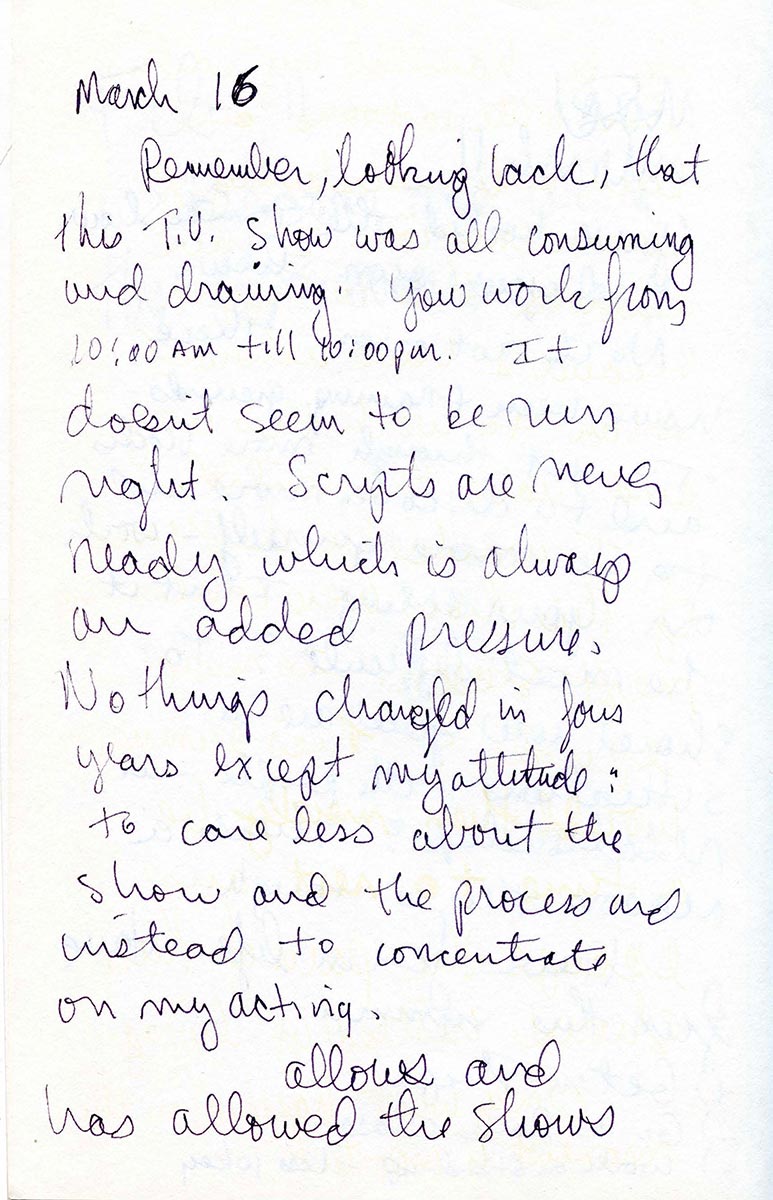 March 16
Remember, looking back, that
this T.V. show was all consuming
and draining. You work from
10:00 AM till 10:00pm. It
doesn't seem to be run
right. Scripts are never
ready which is always
an added pressure.
Nothings changed in four
years except my attitude:
to care less about the
show and the process and
instead to concentrate
on my acting.
allows and
has allowed the shows